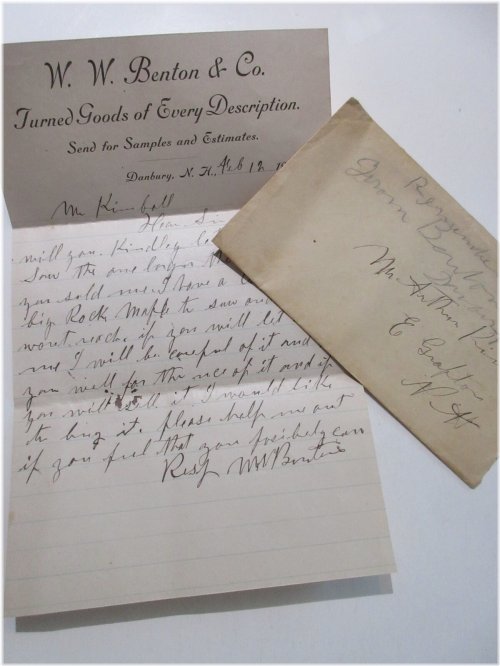 W. W. Benton & Co.
Turned Goods of Every Description.
Send for Samples and Estimates.
Danbury, N. H., Feb 12
Mr Kimball
Dear Sir
will you. Kindley let
Saw the one longer
you sold me. I have a
big Rock Maple to saw and
wont reach if you will let
me I will be careful of it and
you well for the use of it and if
you will sell it I would like
to buy it. please help me out
if you feel that you possibely can
Resp W W Benton
From Benton
Mr Arthur
E Grafton
N H